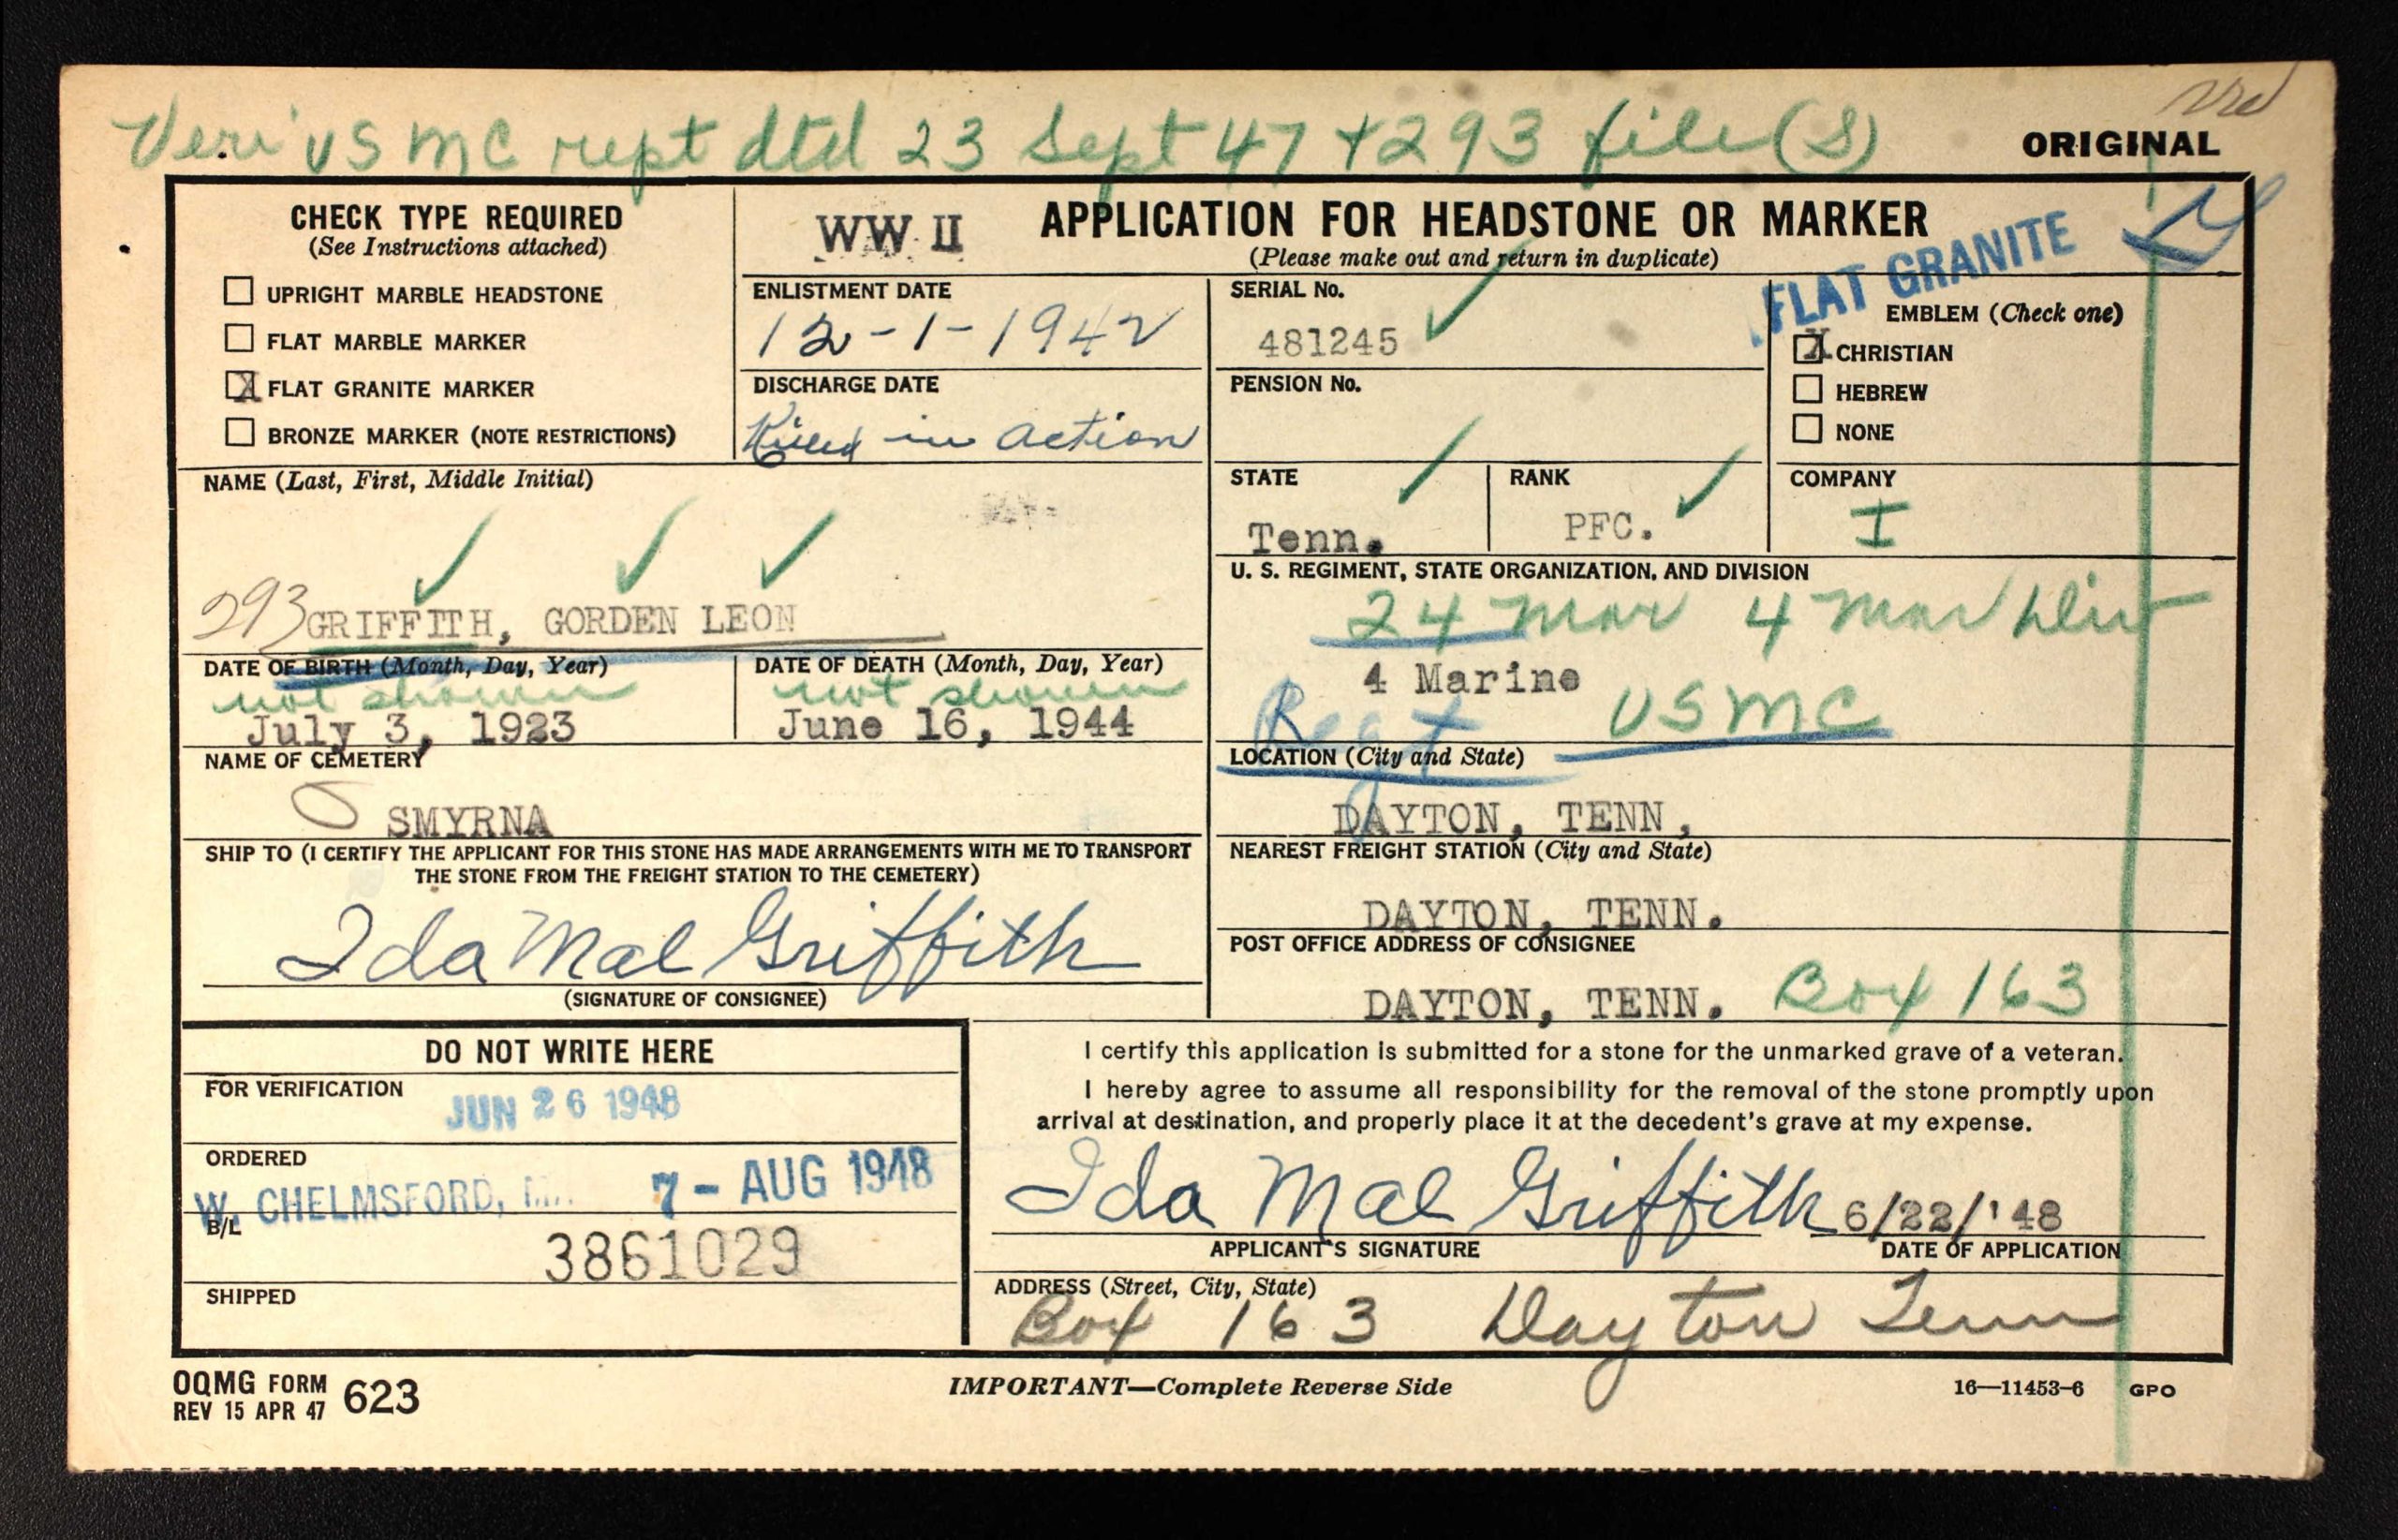 Veri USMC rept dtd 23 Sept 47 + 293 file (S)
ORIGINAL
CHECK TYPE REQUIRED
(See Instructions attached)
☐ UPRIGHT MARBLE HEADSTONE
☐ FLAT MARBLE MARKER
☒ FLAT GRANITE MARKER
☐ BRONZE MARKER (NOTE RESTRICTIONS)
WW II
APPLICATION FOR HEADSTONE OR MARKER
(Please make out and return in duplicate)
FLAT GRANITE
ENLISTMENT DATE
12-1-1942
DISCHARGE DATE
Killed in action
SERIAL No.
481245 ✓
PENSION No.
EMBLEM (Check one)
☒ CHRISTIAN
☐ HEBREW
☐ NONE
NAME (Last, First, Middle Initial)
✓ ✓ ✓
293 GRIFFITH, GORDEN LEON
STATE
Tenn. ✓
RANK
PFC. ✓
COMPANY
I
U. S. REGIMENT, STATE ORGANIZATION, AND DIVISION
24 Mar 4 Mar Div
4 Marine
Regt USMC
DATE OF BIRTH (Month, Day, Year)
not shown
July 3, 1923
DATE OF DEATH (Month, Day, Year)
not shown
June 16, 1944
NAME OF CEMETERY
SMYRNA
LOCATION (City and State)
DAYTON, TENN,
SHIP TO (I CERTIFY THE APPLICANT FOR THIS STONE HAS MADE ARRANGEMENTS WITH ME TO TRANSPORT
THE STONE FROM THE FREIGHT STATION TO THE CEMETERY)
Ida Mae Griffith
(SIGNATURE OF CONSIGNEE)
NEAREST FREIGHT STATION (City and State)
DAYTON, TENN.
POST OFFICE ADDRESS OF CONSIGNEE
DAYTON, TENN. Box 163
DO NOT WRITE HERE
FOR VERIFICATION
JUN 26 1948
ORDERED
W. CHELMSFORD, 7 - AUG 1948
B/L
3861029
SHIPPED
I certify this application is submitted for a stone for the unmarked grave of a veteran.
I hereby agree to assume all responsibility for the removal of the stone promptly upon
arrival at destination, and properly place it at the decedent's grave at my expense.
Ida Mae Griffith 6/22/'48
APPLICANT'S SIGNATURE DATE OF APPLICATION
ADDRESS (Street, City, State)
Box 163 Dayton Tenn
OQMG FORM 623
REV 15 APR 47
IMPORTANT—Complete Reverse Side
16—11453-6 GPO